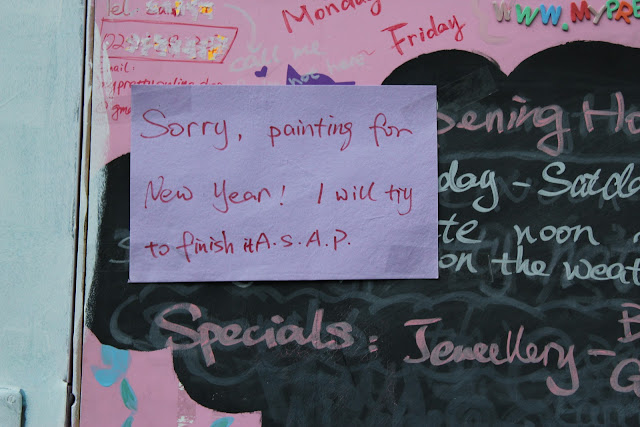 Tel:
Monday
Friday
www.MYPRE
Sorry, painting for
New Year! I will try
to finish it A.S.A.P.
ening Ho
day - Satda
noon
on the weat
Specials: Jewellery -